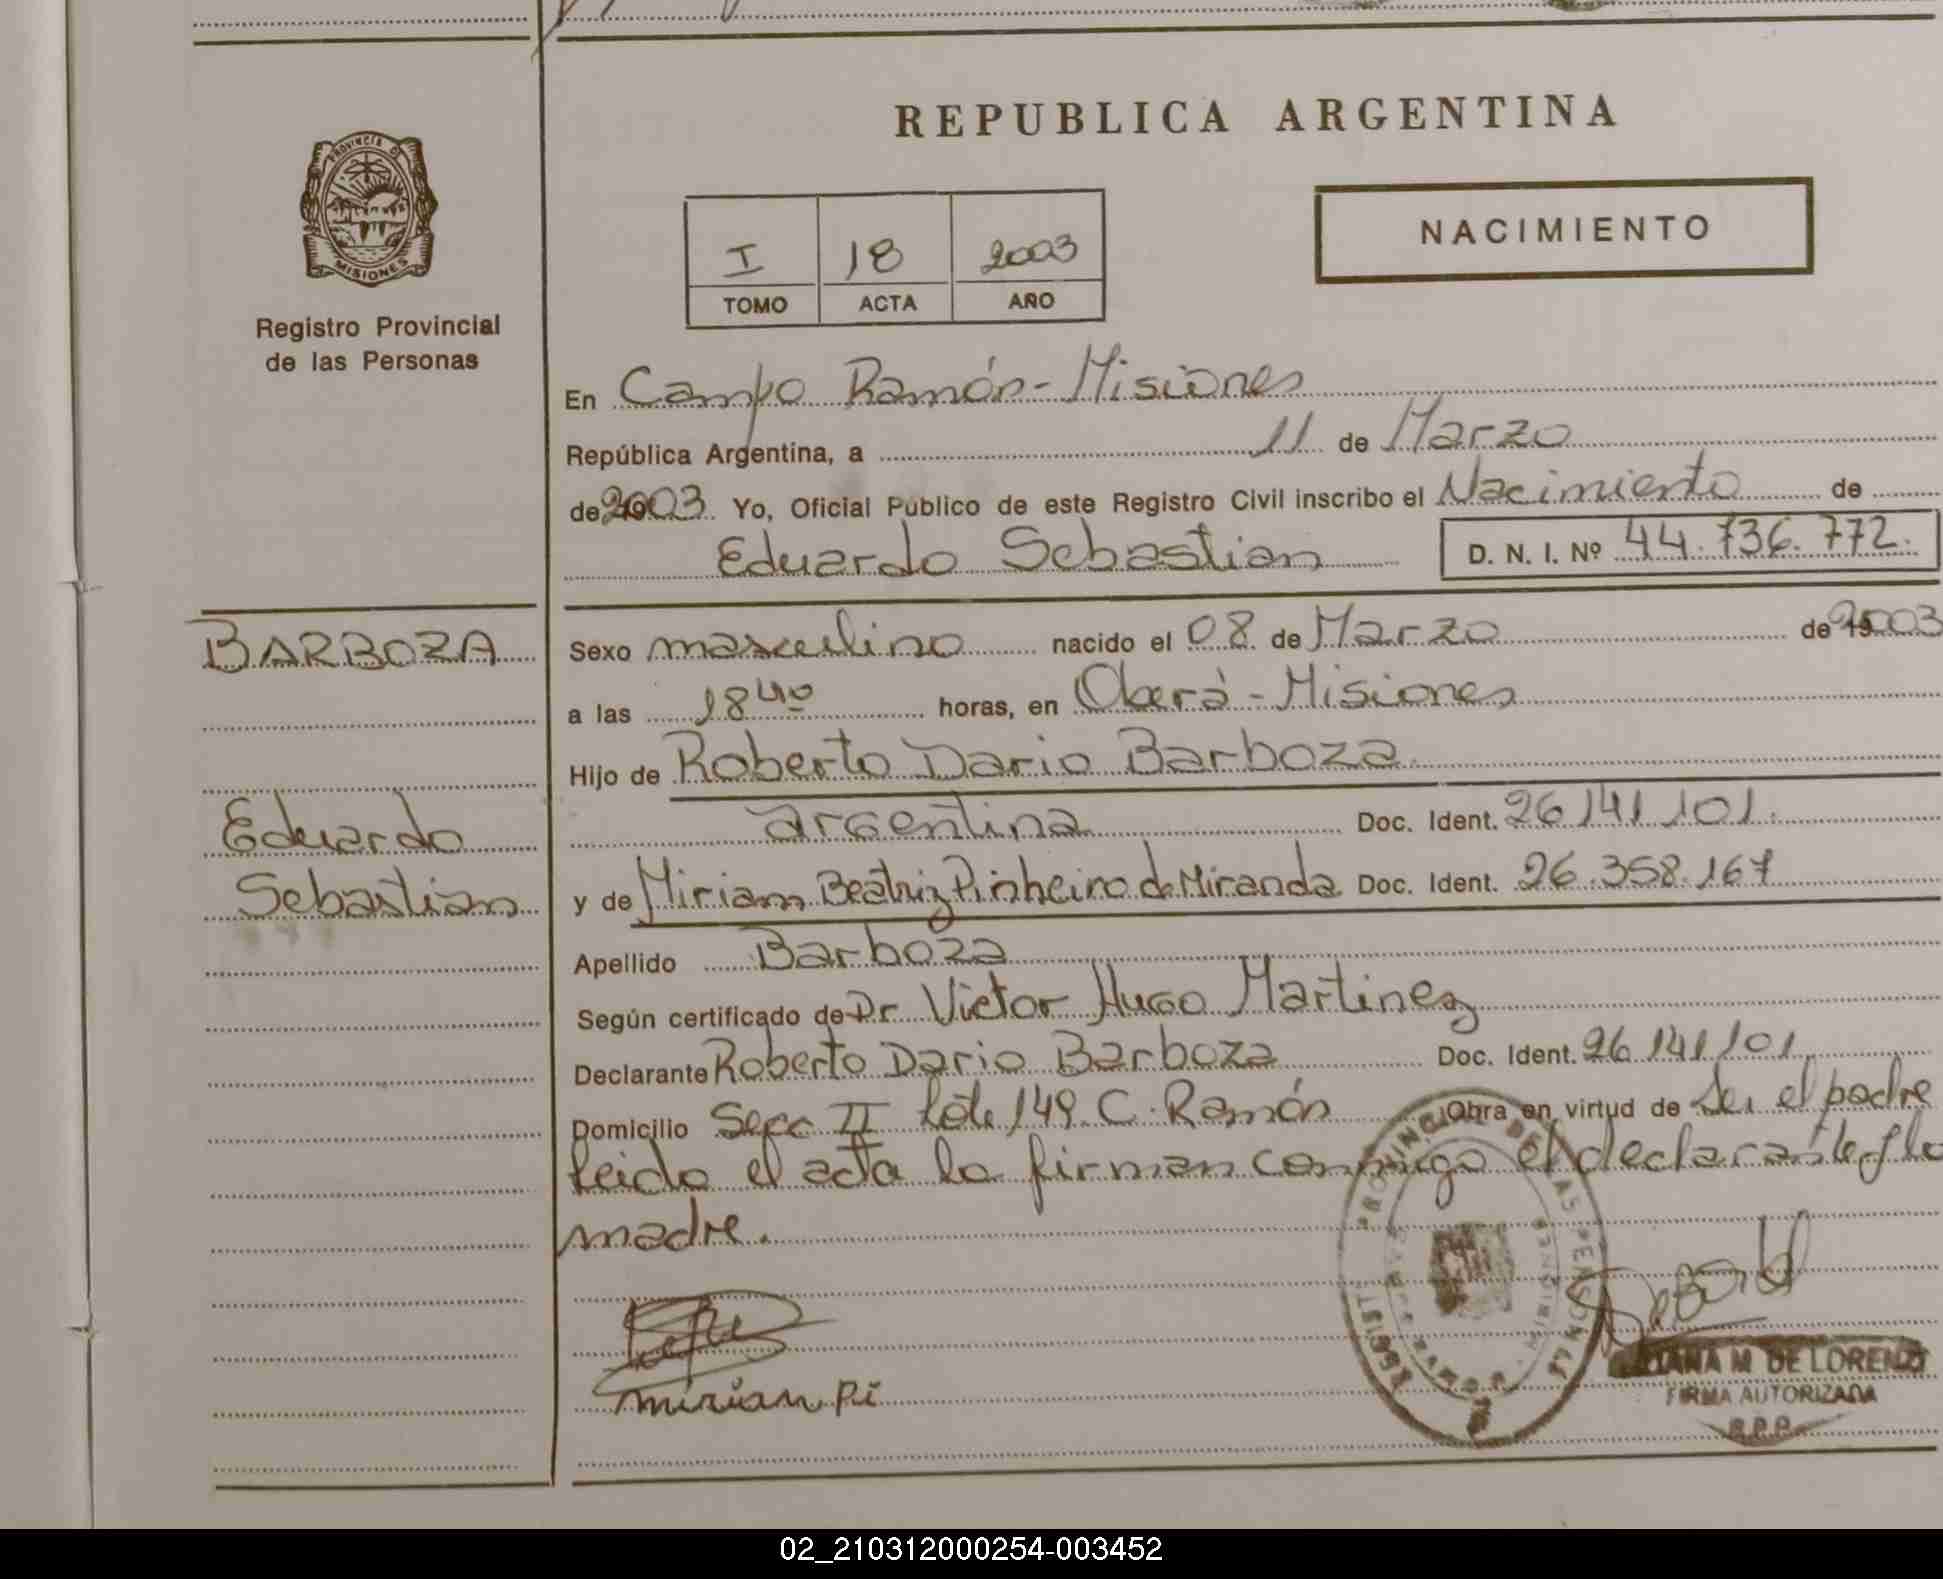 REPUBLICA ARGENTINA
PROVINCIA DE
MISIONES
Registro Provincial
de las Personas
NACIMIENTO
I 18 2003
TOMO ACTA AÑO
En Campo Ramón - Misiones
República Argentina, a 11 de Marzo
de 2003 Yo, Oficial Público de este Registro Civil inscribo el Nacimiento de
Eduardo Sebastian D. N. I. Nº 44.736.772.
BARBOZA
Eduardo
Sebastian
Sexo masculino nacido el 08 de Marzo de 2003
a las 18 40 horas, en Oberá - Misiones
Hijo de Roberto Dario Barboza
argentina Doc. Ident. 26.141.101.
y de Miriam Beatriz Pinheiro de Miranda Doc. Ident. 26.358.167
Apellido Barboza
Según certificado de Dr. Victor Hugo Martinez
Declarante Roberto Dario Barboza Doc. Ident. 26.141.101
Domicilio Secc II Lote 149. C. Ramón Obra en virtud de Ser el padre
leido el acta la firman conmigo el declarante y la
madre.
mirian Pi
PROVINCIAL DE LAS PERSONAS
MISIONES
DE LORENZO
FIRMA AUTORIZADA
R.P.P.
02_210312000254-003452